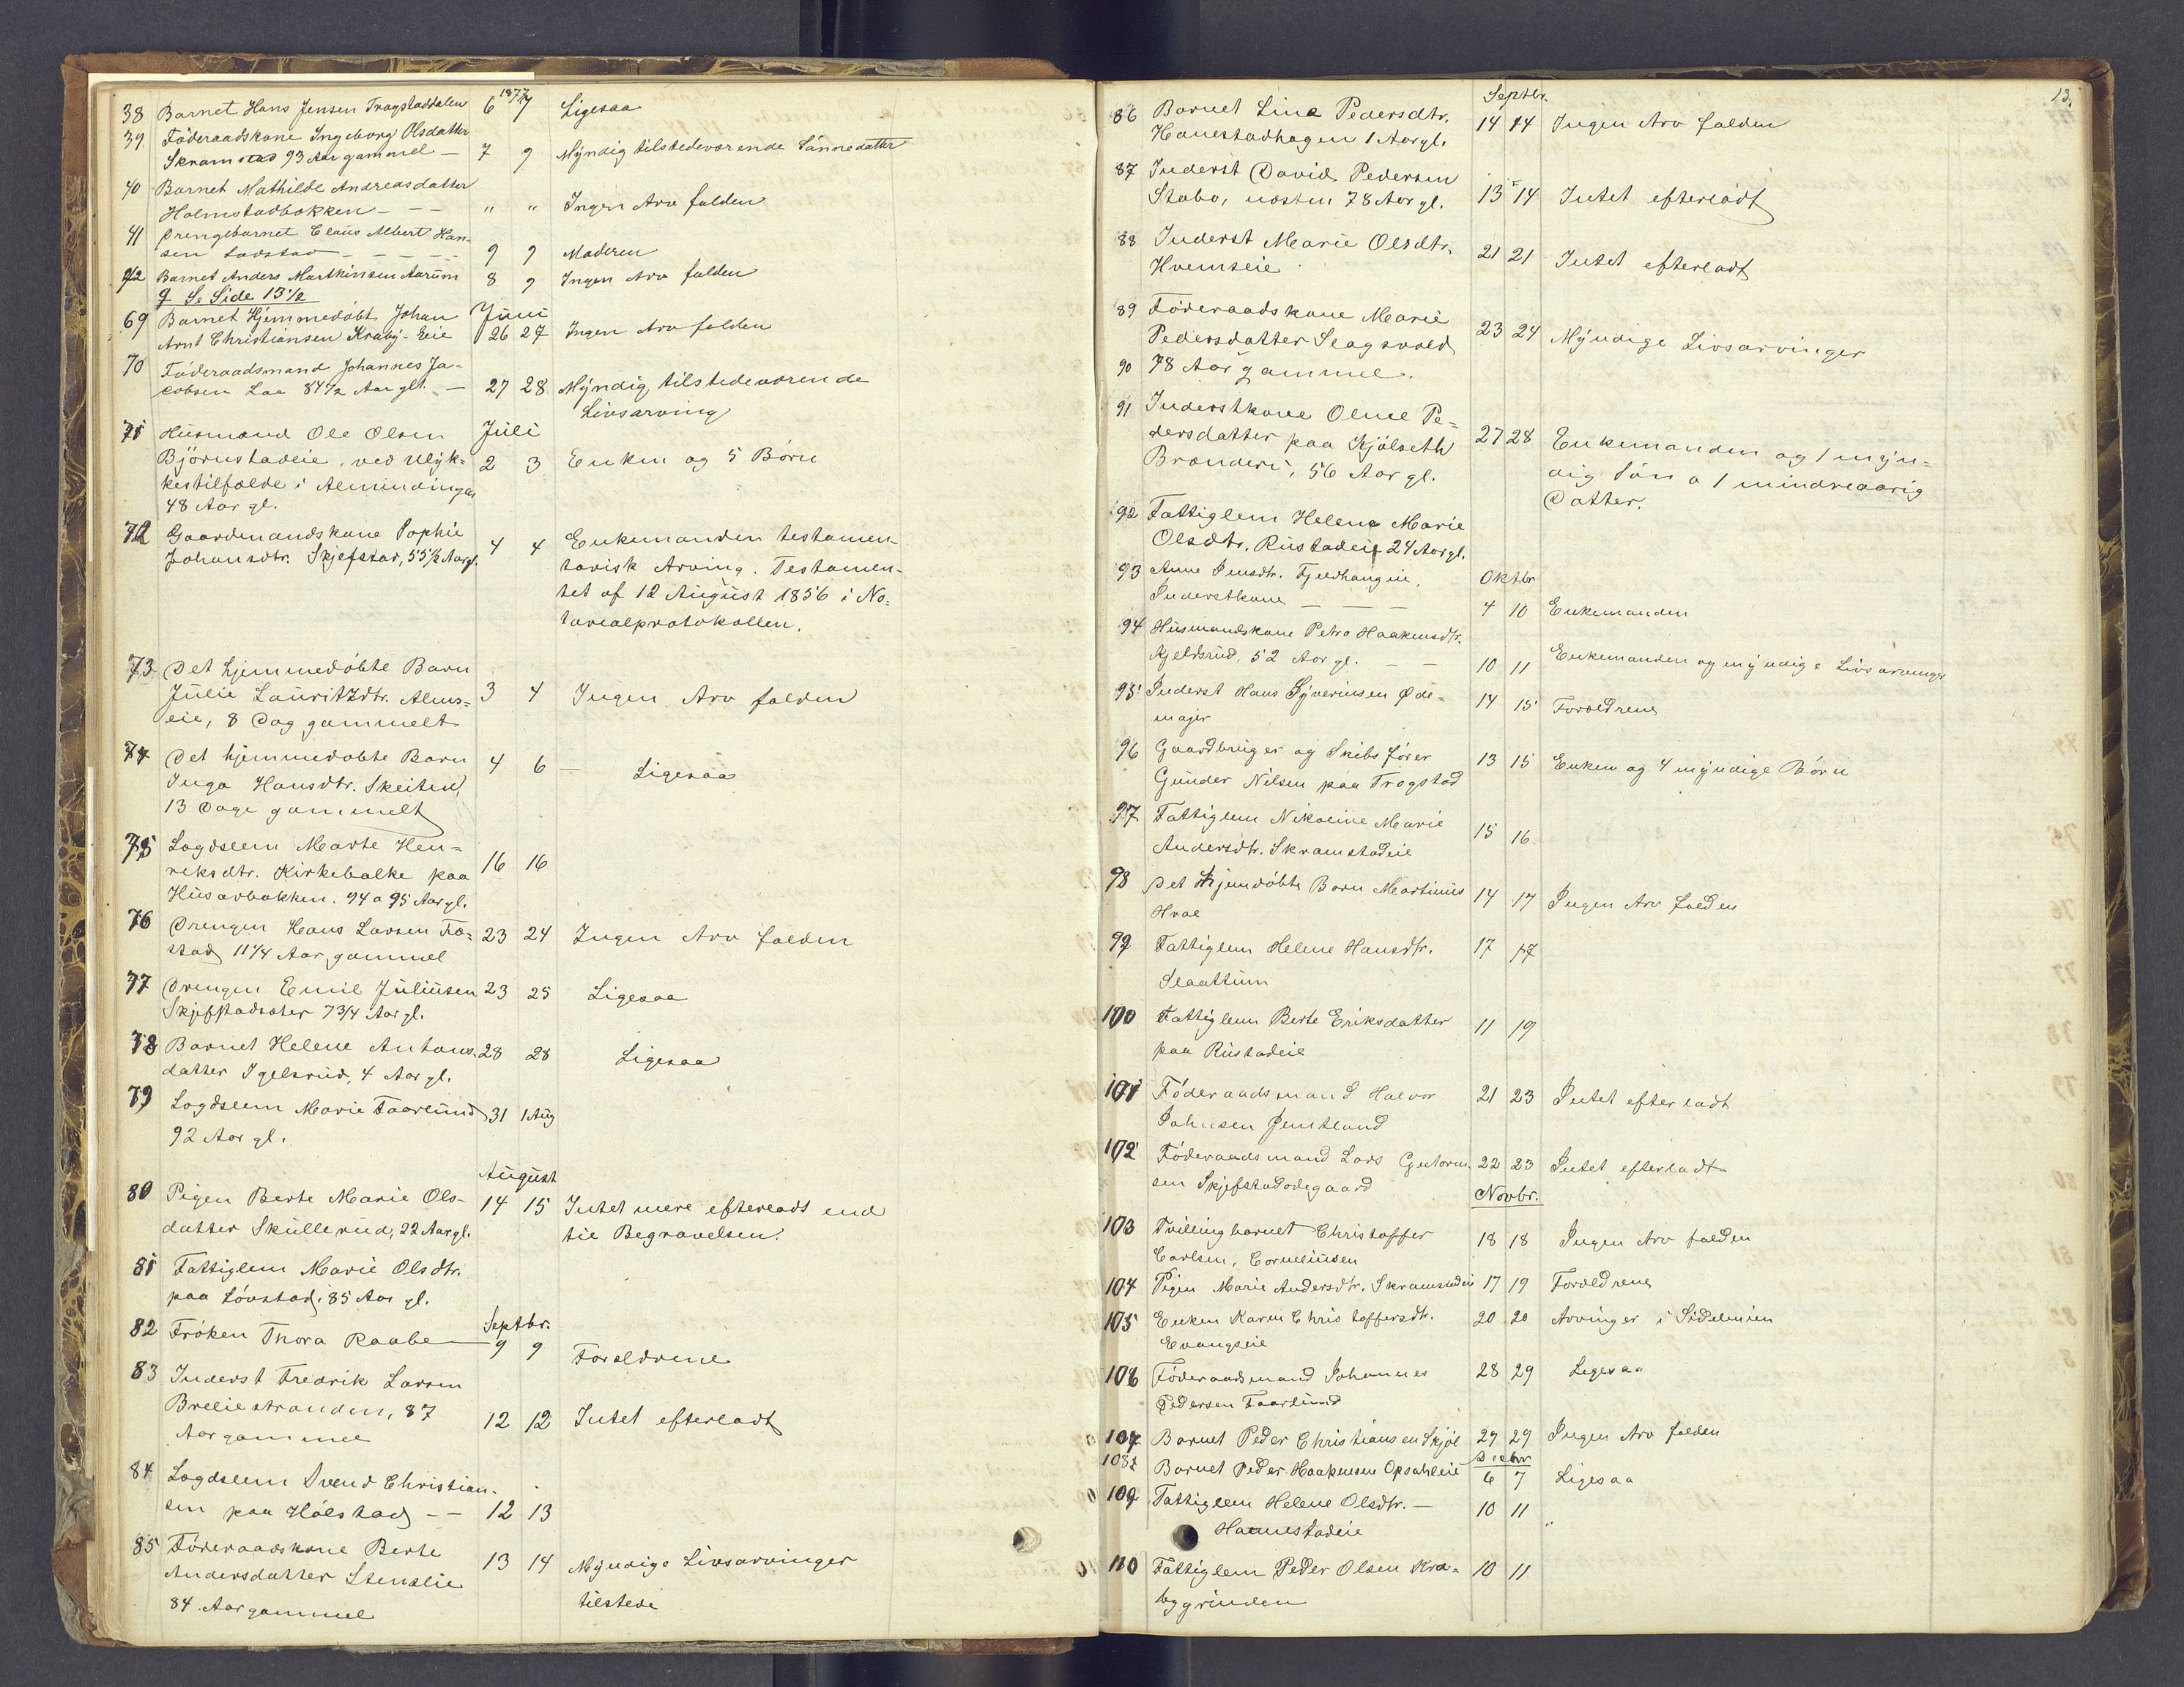 1877
38 Barnet Hans Jensen Trogstaddalen 6 7 Ligesaa
39 Föderaadskone Ingeborg Olsdatter
Skramstad 93 Aar gammel — 7 9 Myndig tilstedeværende Sönnedatter
40 Barnet Mathilde Andreasdatter
Holmstadbakken - — — " " Ingen Arv falden
41 Drengebarnet Claus Albert Han-
sen Ladstad - - - - - 9 9 Moderen
42 Barnet Anders Martkinsen Aarum 8 9 Ingen Arv falden
Se Side 13 1/2
69 Barnet Hjemmedöbt Johan Juni
Arnt Christiansen Kraby-Eie 26 27 Ingen Arv falden
70 Föderaadsmand Johannes Ja-
cobsen Laa 84 1/2 Aar gl. — 27 28 Myndig tilstedeværende
Livsarving
71 Husmand Ole Olsen Juli
Björnstadeie, ved Ulyk- 2 3 Enken og 5 Börn
kestilfælde i Almindingen
48 Aar gl.
72 Gaardmandskone Sophie
Johansdtr. Skjefstad, 55 1/2 Aar gl. 4 4 Enkemanden testamen-
tarisk Arving. Testamen-
tet af 12 August 1856 i No-
tarialprotokollen.
73 Det hjemmedöbte Barn
Julie Lauritzdtr. Alms- 3 4 Ingen Arv falden
eie, 8 Dag gammelt
74 Det hjemmedöbte Barn 4 6 — Ligesaa
Inga Hansdtr. Skeiten,
13 Dage gammelt
75 Lægdslem Marte Hen-
riksdtr. Kirkebakke paa 16 16
Husarbakken. 94 a 95 Aar gl.
76 Drengen Hans Larsen Fa- 23 24 Ingen Arv falden
stad 11 1/4 Aar gammel
77 Drengen Emil Juliusen 23 25 Ligesaa
Skjefstadsæter 7 3/4 Aar gl.
78 Barnet Helene Antons- 28 28 Ligesaa
datter Igelsrud, 4 Aar gl.
79 Lægdslem Marie Faarlund 31 1 Aug
92 Aar gl.
August
80 Pigen Berte Marie Ols- 14 15 Intet mere efterladt end
datter Skullerud, 22 Aar gl. til Begravelsen.
81 Fattiglem Marie Olsdtr.
paa Lövstad. 85 Aar gl.
82 Fröken Thora Raabe Septbr.
9 9 Forældrene
83 Inderst Fredrik Larsen
Brelie stranden, 87 12 12 Intet efterladt
Aar gammel
84 Lægdslem Svend Christian-
sen paa Hölstad - - 12 13
85 Föderaadskone Berte 13 14 Myndige Livsarvinger
Andersdatter Stenslie tilstede
84 Aar gammel
13.
Septbr.
86 Barnet Line Pedersdtr. 14 14 Ingen Arv falden
Hanestadhagen 1 Aar gl.
87 Inderst David Pedersen
Stabo, næsten 78 Aar gl. 13 14 Intet efterladt
88 Inderst Marie Olsdtr. 21 21 Intet efterladt
Hvemseie
89 Föderaadskone Marie
Pedersdatter Slagsvold 23 24 Myndige Livsarvinger
90 78 Aar gammel.
91 Inderstkone Oline Pe-
dersdatter paa Kjölseth 27 28 Enkemanden og 1 myn-
Brænderi, 56 Aar gl. dig Sön a 1 mindreaarig
Datter.
92 Fattiglem Helene Marie
Olsdtr. Rustadeie 24 Aar gl.
93 Anne Jensdtr. Fjeldhaugeie, Oktbr
Inderstkone — — — 4 10 Enkemanden
94 Husmandskone Petra Haakensdtr.
Kjeldsrud, 52 Aar gl. — — 10 11 Enkemanden og myndige Livsarvinger
95 Inderst Hans Syverinsen Øde- 14 15 Forældrene
majer
96 Gaardbruger og Skibsfører 13 15 Enken og 4 myndige Börn
Gunder Nilsen paa Trogstad
97 Fattiglem Nikoline Marie 15 16
Andersdtr. Skramstadeie
98 Det Hjemdöbte Barn Martinius 14 17 Ingen Arv falden
Hval
99 Fattiglem Helene Hansdtr. 17 17
Slaattum
100 Fattiglem Berte Eriksdatter 11 19
paa Rustadeie
101 Föderaadsmand Halvor 21 23 Intet efterladt
Johnsen Jemtland
102 Föderaadsmand Lars Gutorm- 22 23 Intet efterladt
sen Skjefstadødegaard Novbr.
103 Tvillingbarnet Christoffer 18 18 Ingen Arv falden
Carlsen, Corneliusen
104 Pigen Marie Andersdtr. Skramstadeie 17 19 Forældrene
105 Enken Karen Christoffersdtr. 20 20 Arvinger i Sidelinien
Evangseie
106 Föderaadsmand Johannes 28 29 Ligesaa
Pedersen Faarlund
107 Barnet Peder Christiansen Skjöl 29 29 Ingen Arv falden
Decbr
108 Barnet Peder Haakensen Opsahleie 6 7 Ligesaa
109 Fattiglem Helene Olsdtr. — 10 11 "
Hannestadeie
110 Fattiglem Peder Olsen Kra- 10 11
bygrinden